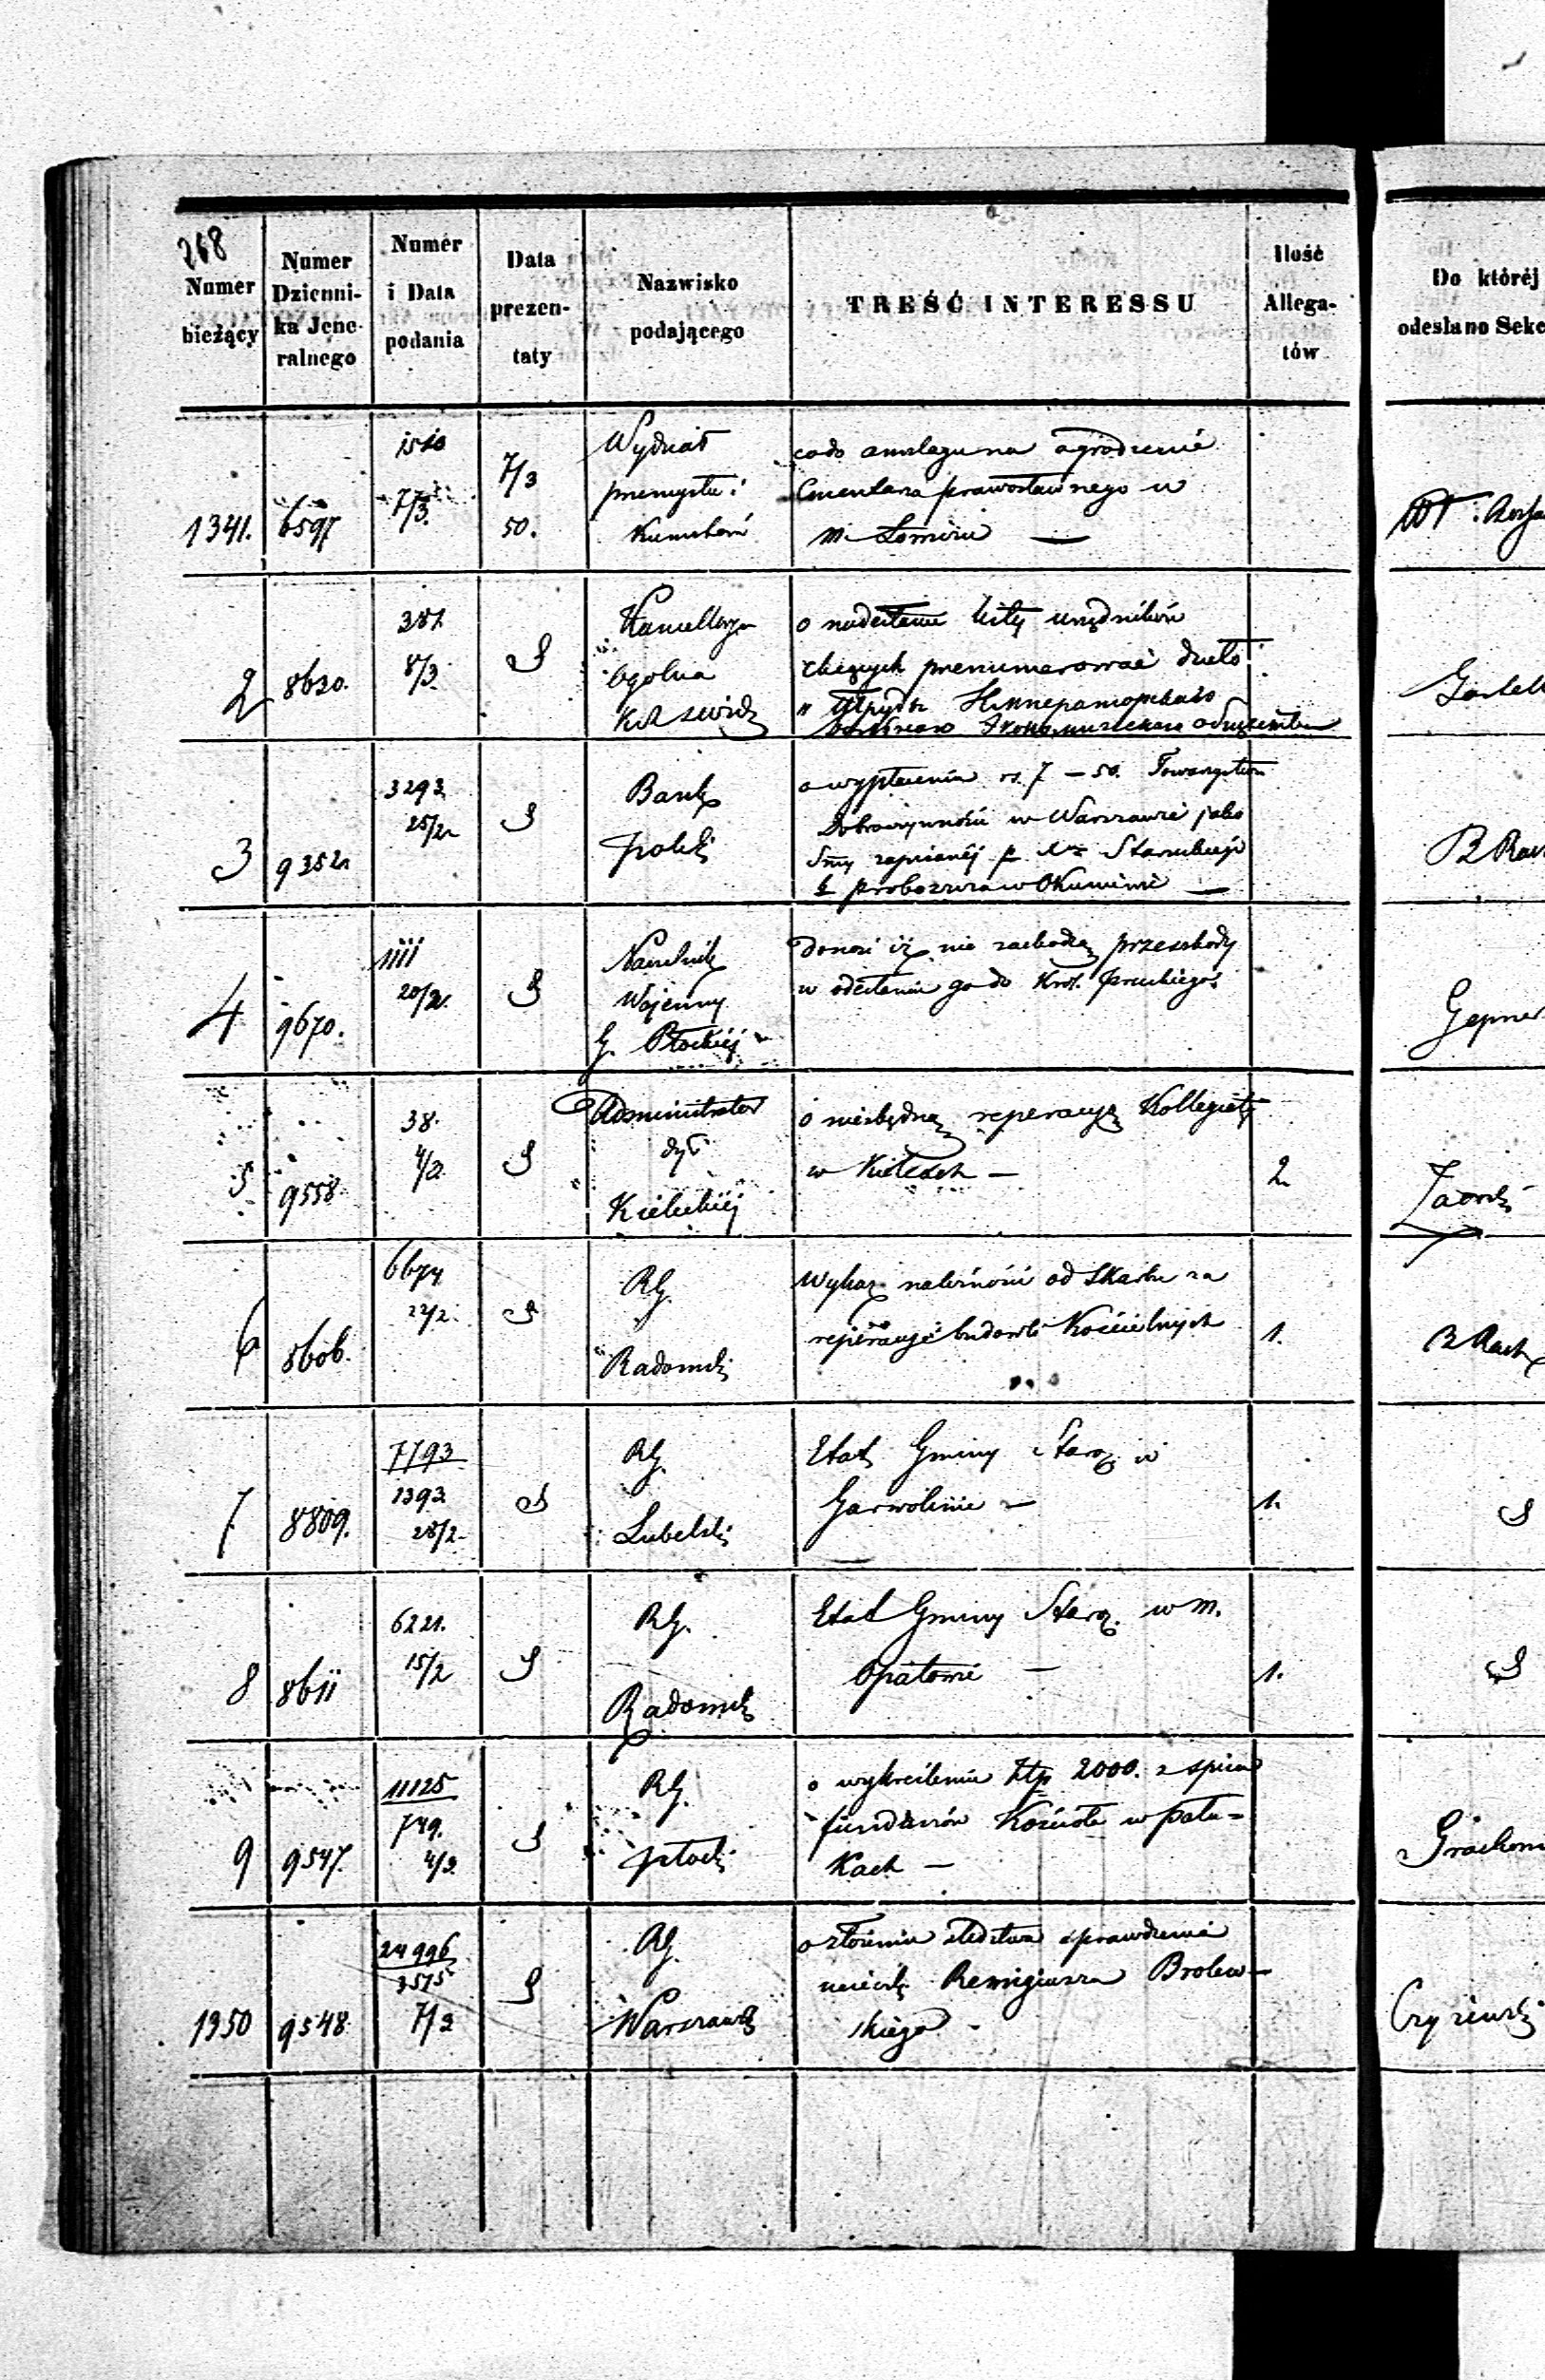 268
Numer bieżący
Numer Dzienni- ka Jene- ralnego
Numer i Data podania
Data prezen- taty
Nazwisko podającego
TREŚĆ INTERESSU
Ilość Allega- tów
Do któréj odesłano Sek
1341. 6597 1510 7/3. 7/3 50.
Wydział
przemysłu i
Kunsztów
co do anszlagu na ogrodzenie
Cmentarza prawosławnego w
m. Łomży —
2 8630. 387. 8/3.
Kancellarya
Ogólna
o nadesłanie listy urzędników
chcących prenumerować dzieło
3 9352 3293 25/2
Bank
Polski
o wypłacenie rs. 7 – 50. Towarzystwu
Dobroczynności w Warszawie jako
Smy zapisanéj p.
4 9670. 1111 20/2.
Naczelnik
Wojenny
G. Płockiéj
Donosi iż nie zachodzą przeszkody
w odesłaniu go do Król. Pruskiego
Gepner
5 9558 38.
Administrator
dyc.
Kieleckiéj
o niezbędną reperacyą Kollegiaty
w Kielcach —
2
6 8606. 6674 22/2.
RG.
Radomski
Wykaz należności od Skarbu za
reperacye budowli Kościelnych
1.
B Rach
7 8809. 7793 1393 28/2
RG.
Lubelski
Etat Gminy Staroz. w
Garwolinie —
1.
8 8611 6221. 15/2
RG.
Radomski
Etat Gminy Staroz. w m.
Opatowie —
1.
9 9547. 11125 749. 4/3
RG.
Płocki
o wykreślenie Złp 2000. z spisu
funduszów Kościoła w Pału-
kach —
1350 9548 24996 3575 7/3
RG.
Warszawski
o złożenie śledztwa sprawdzenia
ucieczki Remigiusza Brolew-
skiego —